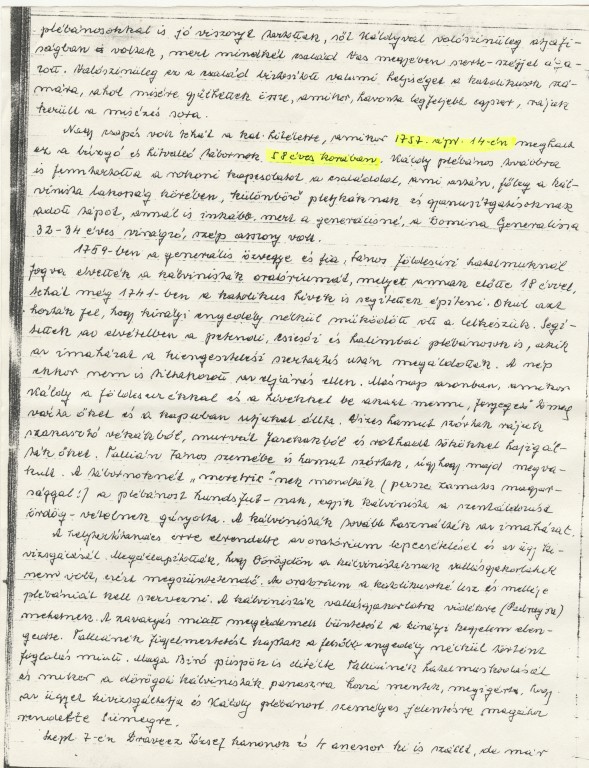 plébánosokkal is jó viszonyt tartottak, sőt Káldyval valószinüleg atyafi-
ságban is voltak, mert mindkét család Vas megyében szerte-széjjel
Valószinüleg ez a család biztosított valami helyiséget a katolikusok szá-
mára, ahol misére gyülhettek össze, amikor havonta legfeljebb egyszer, rájuk
került a misézés sora.
Nagy csapás volt tehát a kat. hitéletre, amikor 1757. ápr. 14-én meghalt
ez a buzgó és hitvalló tábornok 58 éves korában. Káldy plébános továbbra
is fenntartotta a rokoni kapcsolatot a családdal, ami aztán, főleg a kál-
vinista lakosság körében, különböző pletykáknak és gyanusitgatásoknak
adott tápot, annál is inkább, mert a generálisné, a Domina Generalissa
32-34 éves virágzó, szép asszony volt.
1759-ben a generális özvegye és fia, János földesúri hatalmuknál
fogva elvették a kálvinisták oratóriumát, melyet annak előtte 18 évvel,
tehát még 1741-ben a katolikus hívek is segítettek építeni. Okul azt
hozták fel, hogy királyi engedély nélkül működött ott a lelkészük. Segí-
tettek az elvételben a petendi, csicsói és halimbai plébánosok is, akik
az imaházat a kiengesztelési szertartás után megáldották. A nép
ekkor nem is tiltakozott az eljárás ellen. Másnap azonban, amikor
Káldy a földesurakkal és a hívekkel be akart menni, fenyegető tömeg
várta őket és a kapuban utjukat állta. Vizes hamut szórtak rájuk
szakasztó vékákból, murvát fazekakból és rothadt tökökkel hajigál-
ták őket. Palliáni János szemébe is hamut szórtak, úgyhogy majd megva-
kult. A tábornoknét "meretrix"-nek mondták (persze zamatos magyar-
sággal!) a plébánost hundsfut-nak, egyik kálvinista a szentáldozást
ördög-vételnek gúnyolta. A kálvinisták tovább használták az imaházat.
A helytartótanács erre elrendelte az oratórium lepecsételését és az ügy ki-
vizsgálását. Megállapították, hogy Dörögdön a kálvinistáknak vallásgyakorlatuk
nem volt, ezért megszüntetendő. Az oratórium a katolikusoké lesz és mellé
plébániát kell szervezni. A kálvinisták vallásgyakorlatra vidékre
mehetnek. A zavargás miatt megérdemelt büntetést a királyi kegyelem elen-
gedte. Palliániék figyelmeztetést kaptak a felsőbb engedély nélkül történt
foglalás miatt. Maga Biró püspök is elítélte Palliániék hatalmaskodását
és mikor a dörögdi kálvinisták panaszra hozzá mentek, megigérte, hogy
az ügyet kivizsgáltatja és Káldy plébánost személyes jelentésre magához
rendelte Sümegre.
Szept 7-én Dravecz József kanonok és 4 asessor ki is szállt, de már